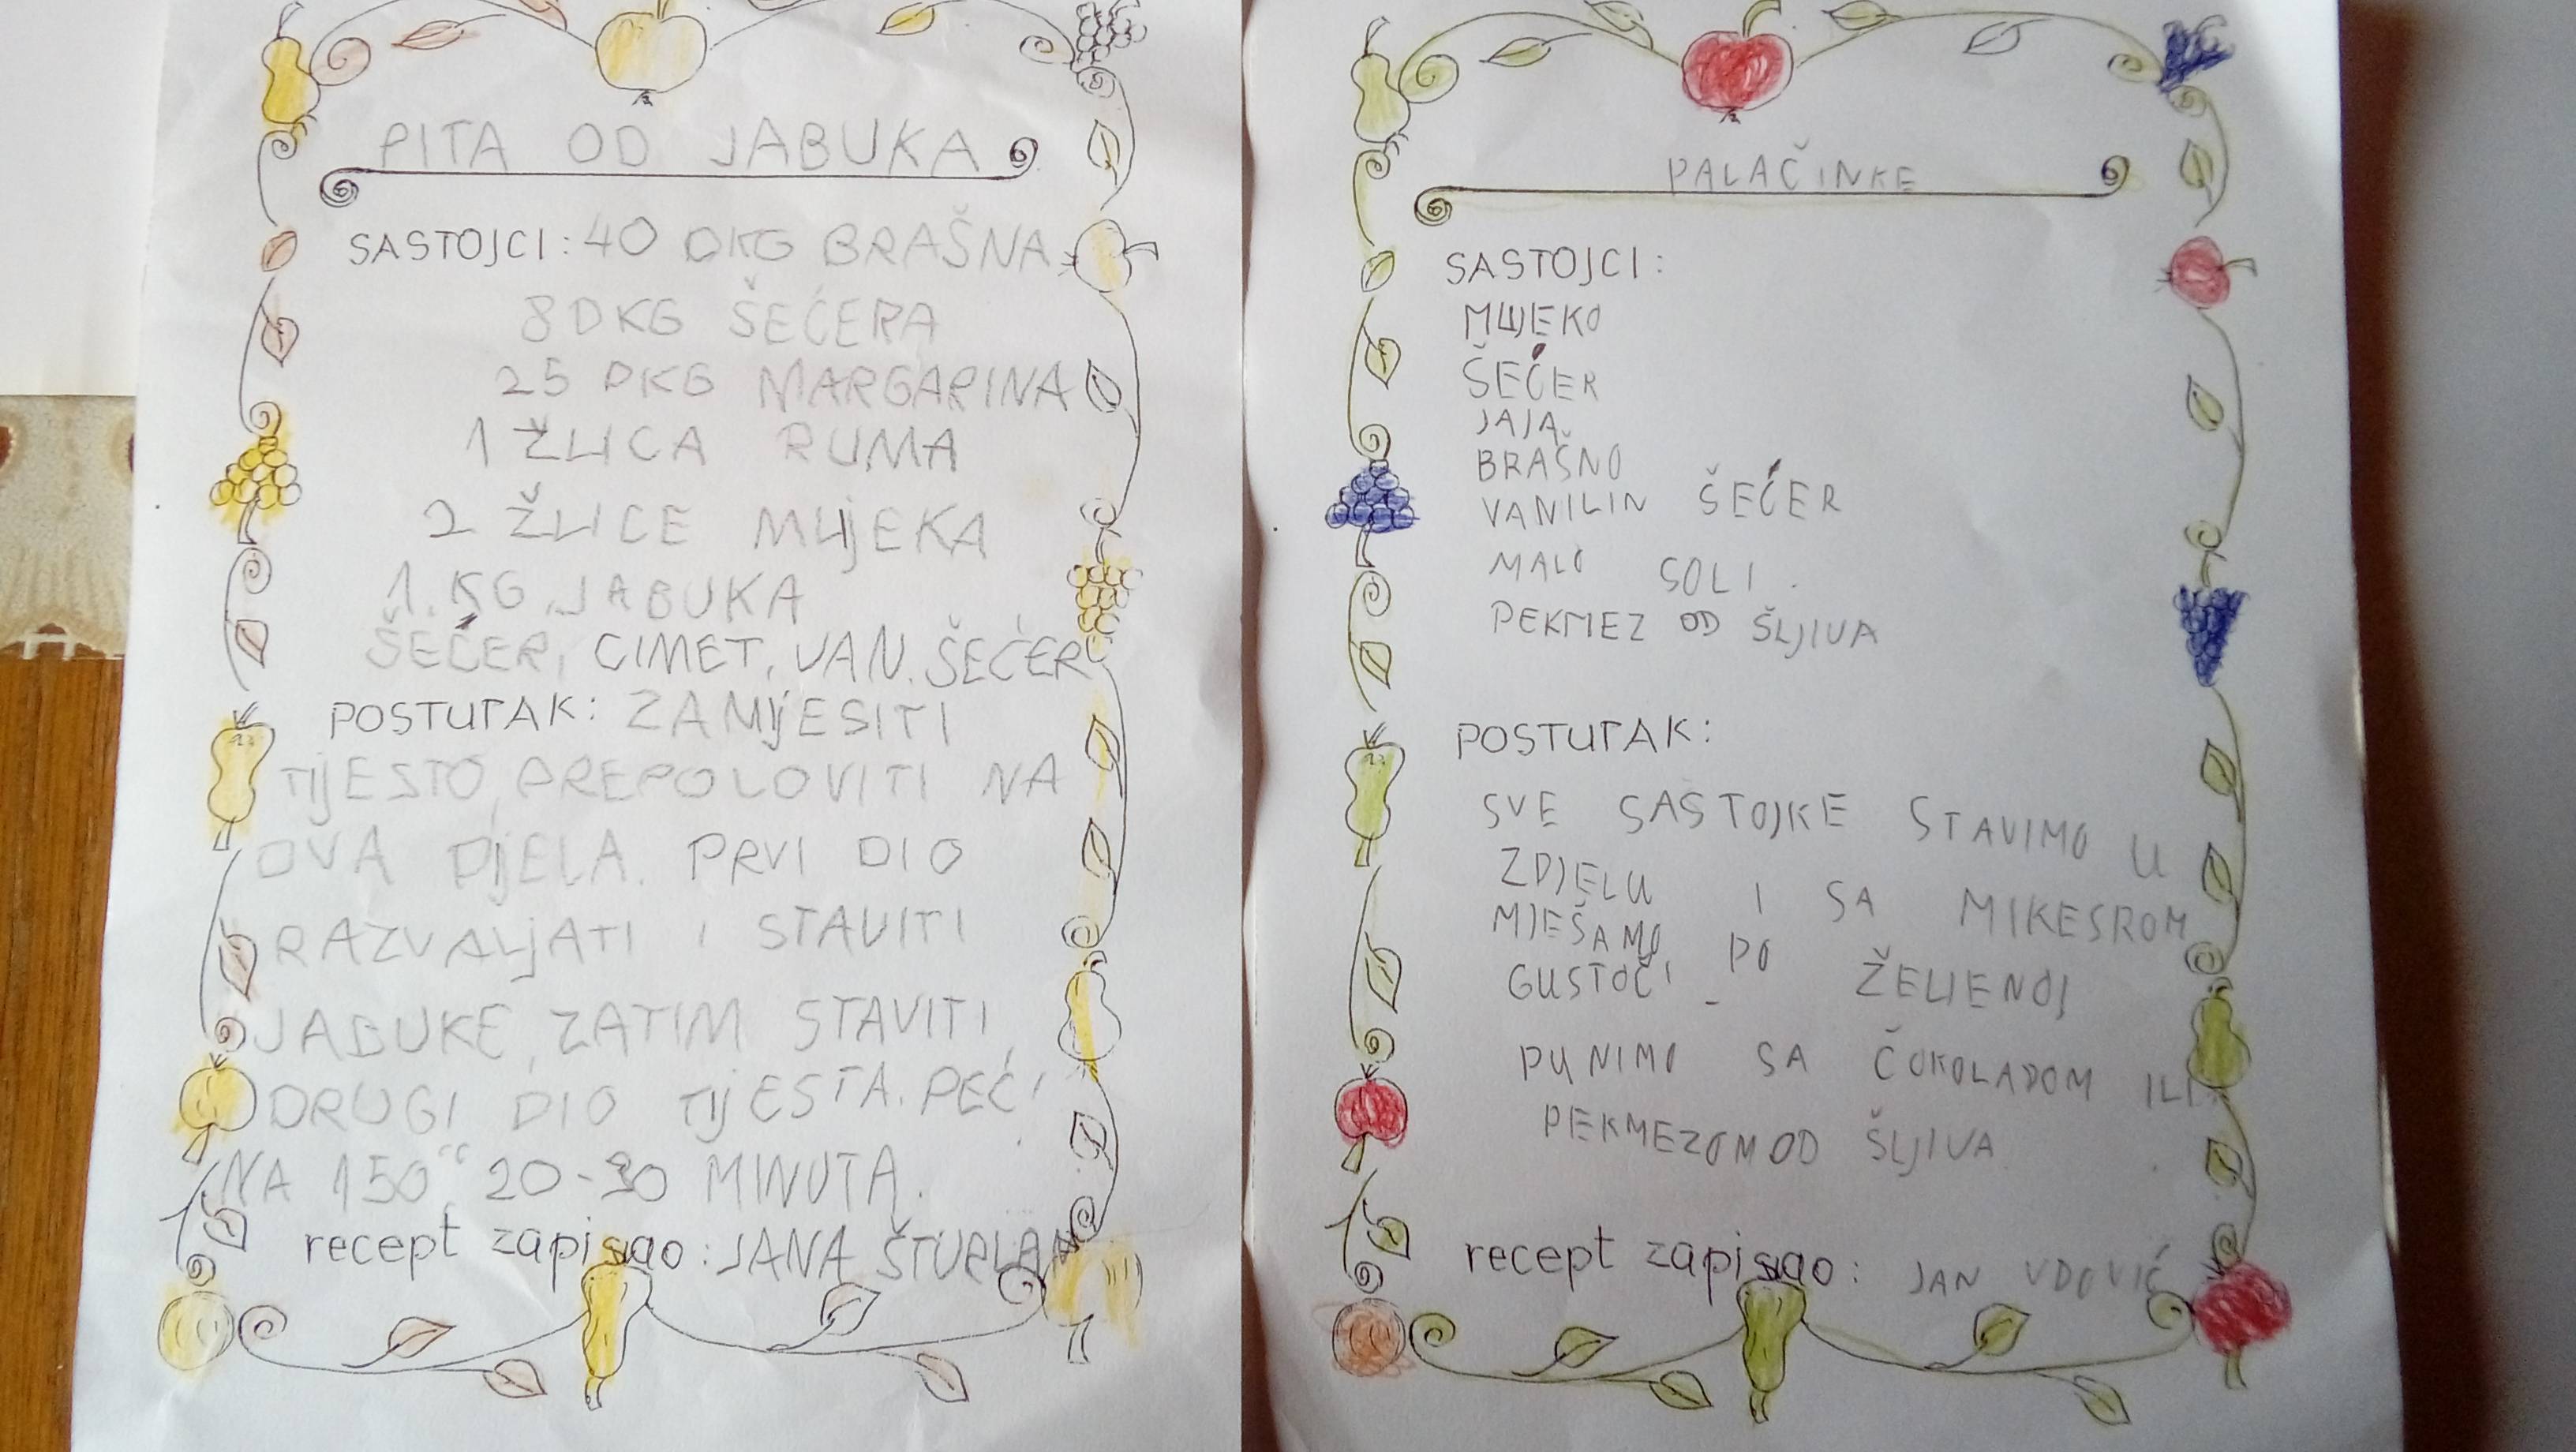 PITA OD JABUKA
SASTOJCI: 40 DKG BRAŠNA
8 DKG ŠEĆERA
25 DKG MARGARINA
1 ŽLICA RUMA
2 ŽLICE MLIJEKA
1. KG JABUKA
ŠEĆER, CIMET, VAN. ŠEĆER
POSTUPAK: ZAMIJESITI
TIJESTO, PREPOLOVITI NA
DVA DIJELA. PRVI DIO
RAZVALJATI I STAVITI
JABUKE, ZATIM STAVITI
DRUGI DIO TIJESTA. PEĆI
NA 150°C 20-30 MINUTA.
recept zapisao: JANA ŠTURLAN
PALAČINKE
SASTOJCI:
MLIJEKO
ŠEĆER
JAJA
BRAŠNO
VANILIN ŠEĆER
MALO SOLI.
PEKMEZ OD ŠLJIVA
POSTUPAK:
SVE SASTOJKE STAVIMO U
ZDJELU I SA MIKESROM
MJEŠAMO PO
GUSTOČI - ŽELJENOJ
PUNIMO SA ČOKOLADOM ILI
PEKMEZOM OD ŠLJIVA
recept zapisao: JAN VDOVIĆ